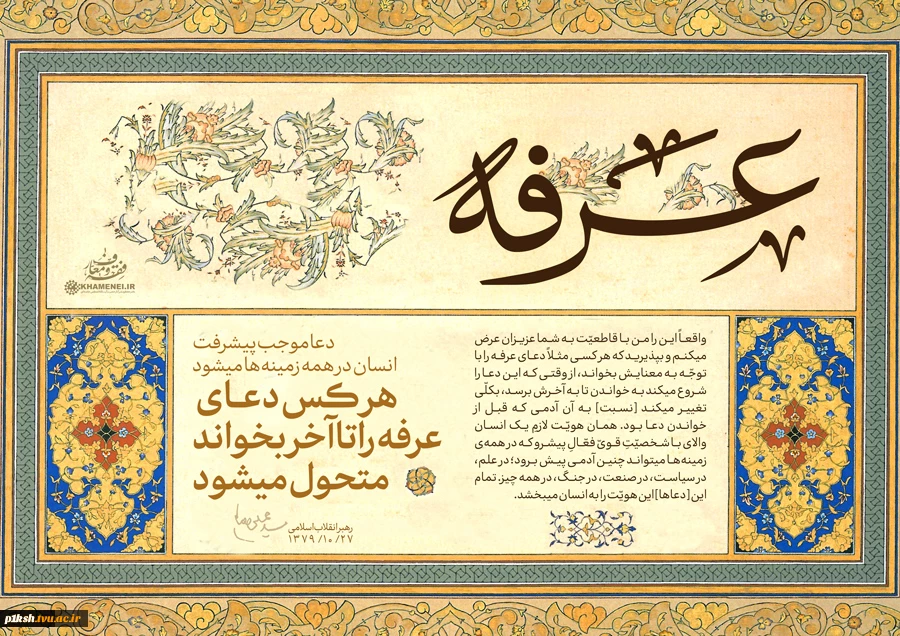 عرفه
فقه و معارف
KHAMENEI.IR
واقعاً این را من با قاطعیّت به شما عزیزان عرض
میکنم و بپذیرید که هر کسی مثلاً دعای عرفه را با
توجّه به معنایش بخواند، از وقتی که این دعا را
شروع میکند به خواندن تا به آخرش برسد، بکلّی
تغییر میکند [نسبت] به آن آدمی که قبل از
خواندن دعا بود. همان هویّت لازمِ یک انسان
والای با شخصیّتِ قویّ فعّالِ پیشرو که در همه‌ی
زمینه‌ها میتواند چنین آدمی پیش برود؛ در علم،
در سیاست، در صنعت، در جنگ، در همه چیز. تمام
این [دعاها] این هویّت را به انسان میبخشد.
دعا موجب پیشرفت
انسان در همه زمینه‌ها میشود
هر کس دعای
عرفه را تا آخر بخواند
متحول میشود
رهبر انقلاب اسلامی
۱۳۷۹/۱۰/۲۷
p1ksh.tvu.ac.ir